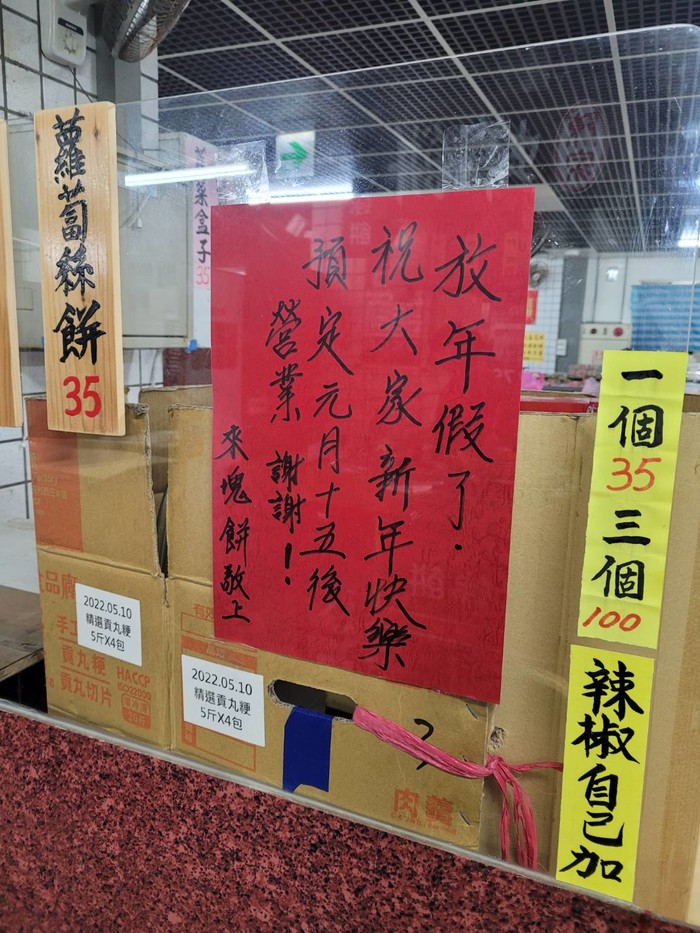 蘿蔔絲餅
35
韭菜盒子
35
放年假了．
祝大家新年快樂
預定元月十五後
營業 謝謝！
來塊餅敬上
一個
35
三個
100
辣椒自己加
2022.05.10
精選貢丸粳
5斤X4包
2022.05.10
精選貢丸粳
5斤X4包
貢丸粳
貢丸切片
HACCP
ISO22000
肉羹